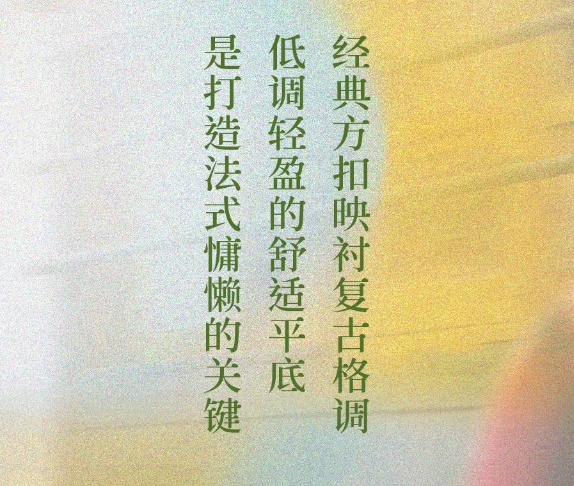 经典方扣映衬复古格调
低调轻盈的舒适平底
是打造法式慵懒的关键